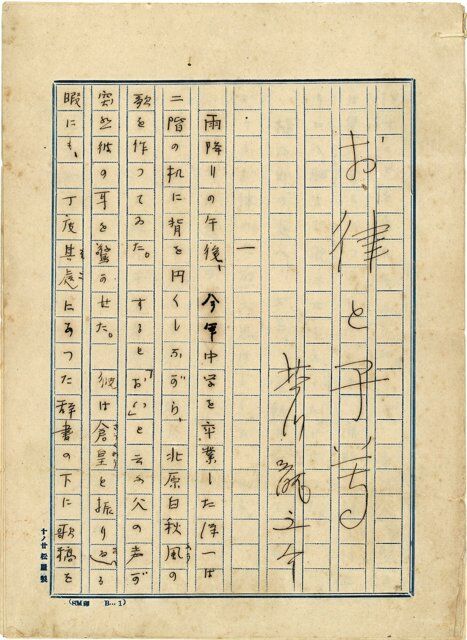 お律と子等
芥川龍之介
一
雨降りの午後、今年中学を卒業した洋一は
二階の机に背を円くしながら、北原白秋風の
歌を作つてゐた。すると「おい」と云ふ父の声が
突然彼の耳を驚かせた。彼は倉皇と振り返る
暇にも、丁度其処にあつた辞書の下に歌稿を
十ノ廿 松屋製
(SM印 B…1)